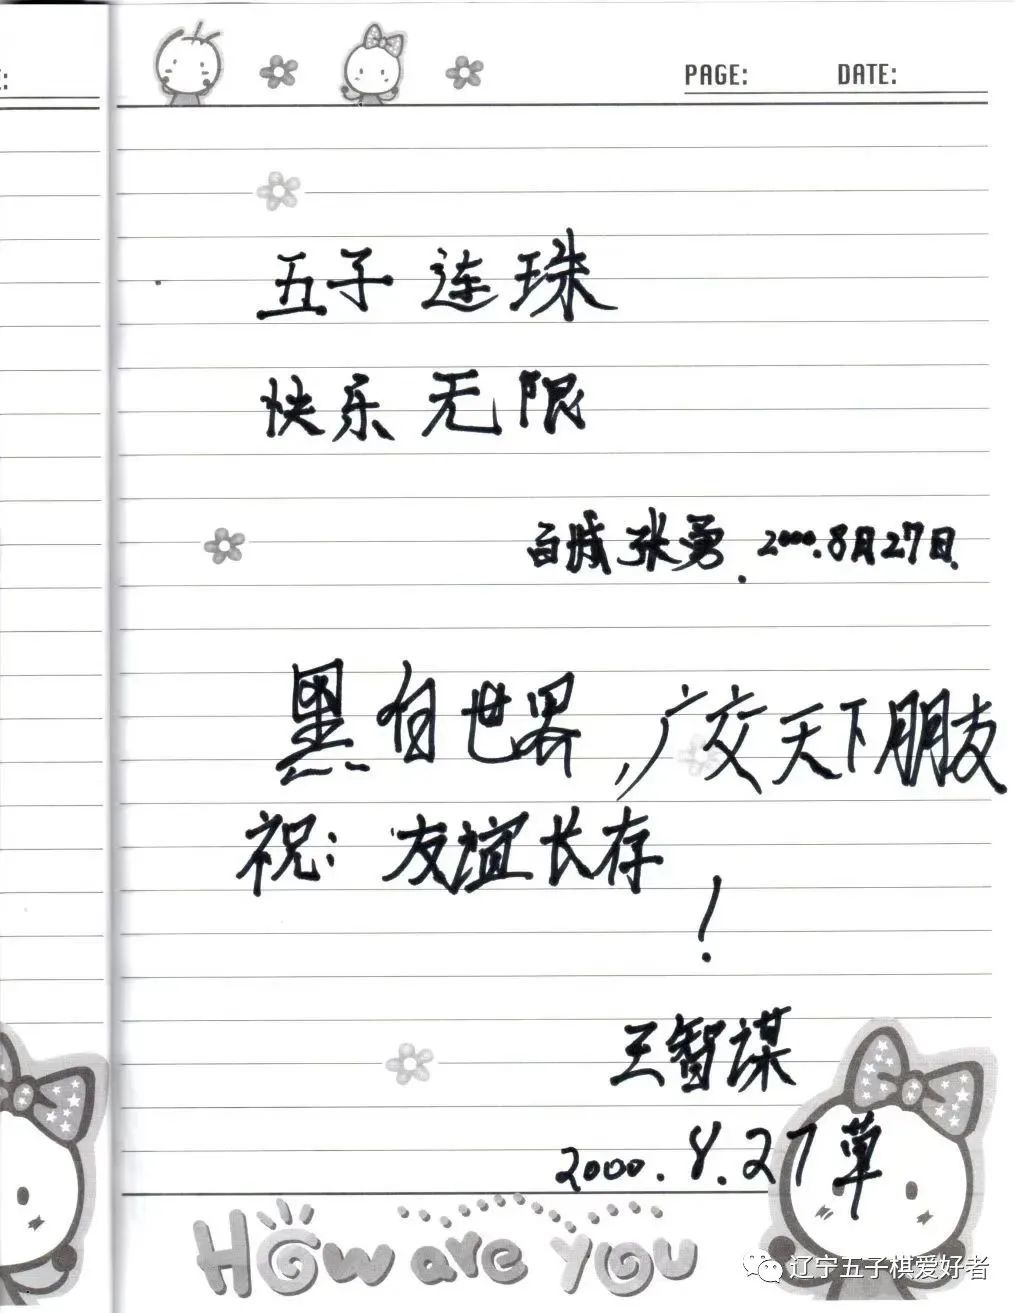 PAGE: DATE:
五子连珠
快乐无限
白城 张勇. 2000.8月27日.
黑白世界,广交天下朋友
祝:友谊长存
!
王智谋
2000.8.27草
How are you
辽宁五子棋爱好者